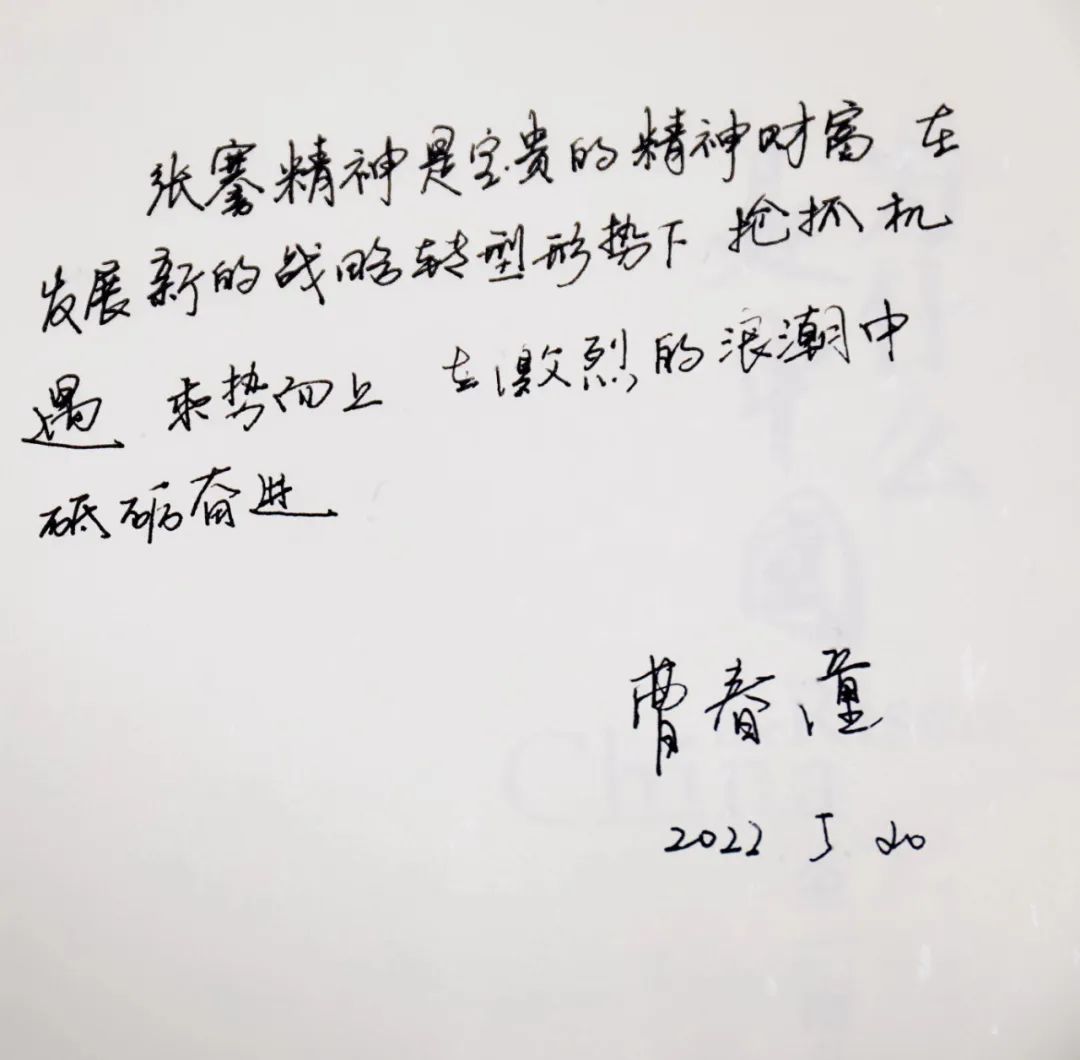 张骞精神是宝贵的精神财富 在
发展新的战略转型形势下 抢抓机
遇 乘势而上 在激烈的浪潮中
砥砺奋进
曹春潼
2022 5 20